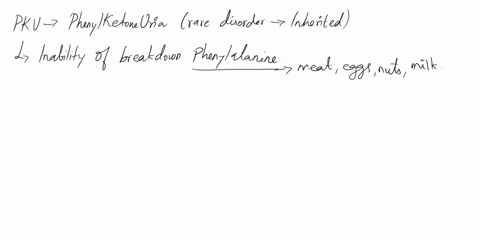 PKU → PhenylKetoneUria (rare disorder → Inherited)
↳ Inability of breakdown Phenylalanine → meat, eggs, nuts, milk.